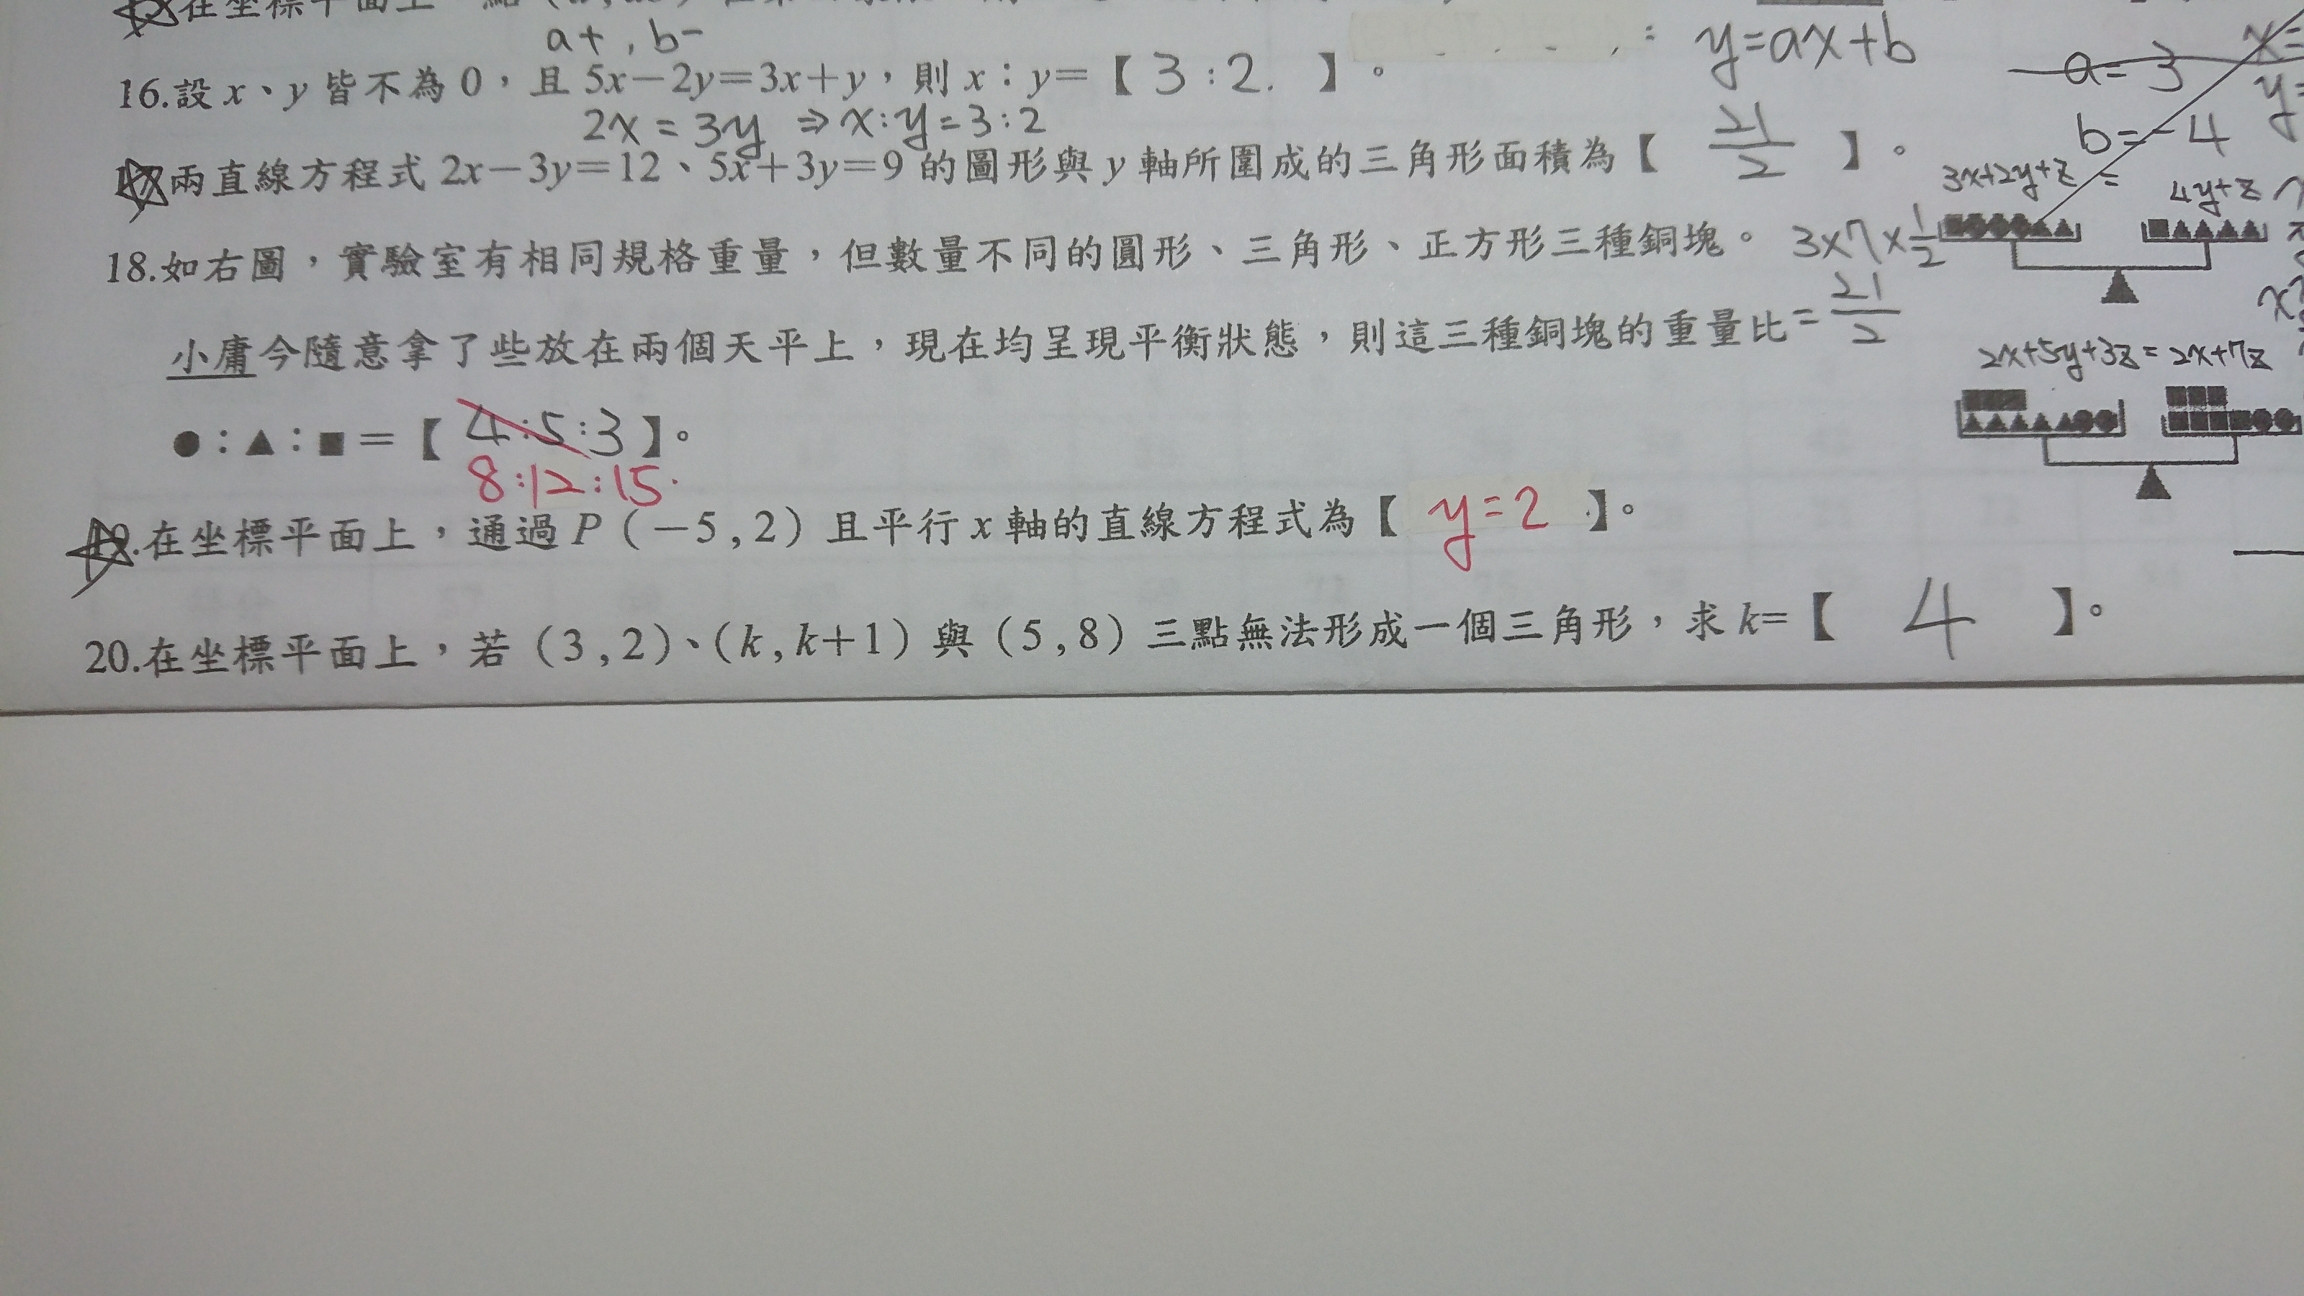 在坐標平面上
a+ , b-
y=ax+b
a=3
16.設 x、y 皆不為 0，且 5x－2y＝3x＋y，則 x：y＝【 3:2. 】。
2x = 3y ⇒ x:y=3:2
b=-4
兩直線方程式 2x－3y＝12、5x＋3y＝9 的圖形與 y 軸所圍成的三角形面積為【 21/2 】。
3x+2y+z = 4y+z
18.如右圖，實驗室有相同規格重量，但數量不同的圓形、三角形、正方形三種銅塊。 3×7×1/2
小庸今隨意拿了些放在兩個天平上，現在均呈現平衡狀態，則這三種銅塊的重量比 = 21/2
2x+5y+3z = 2x+7z
●：▲：■＝【 4:5:3 】。
8:12:15.
19.在坐標平面上，通過 P（－5 , 2）且平行 x 軸的直線方程式為【 y=2 】。
20.在坐標平面上，若（3 , 2）、（k , k＋1）與（5 , 8）三點無法形成一個三角形，求 k=【 4 】。